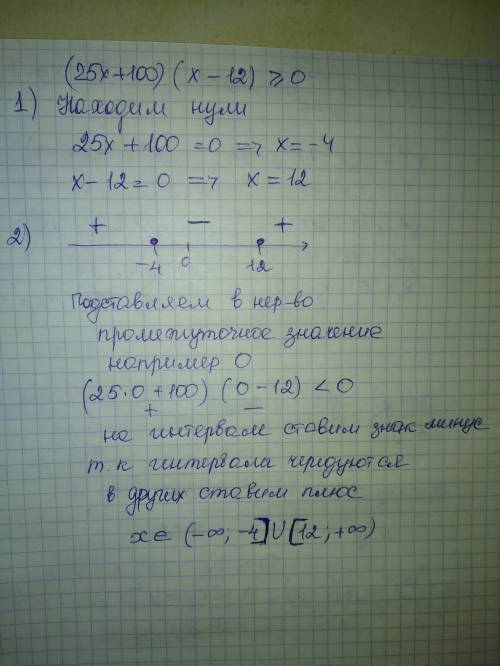 (25x+100) (x-12) ⩾ 0
1) Находим нули
25x + 100 = 0 => x = -4
x - 12 = 0 => x = 12
+ − +
2)
-4 0 12
Подставляем в нер-во
промежуточное значение
например 0
(25·0+100) (0-12) < 0
+ −
на интервале ставим знак минус
т.к интервала чередуются
в других ставим плюс
x ∈ (-∞; -4] ∪ [12; +∞)